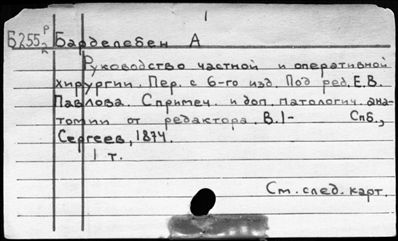 1
Б255 Р Барделебен А
к
Руководство частной и оперативной
хирургии. Пер. с 6-го изд. Под ред. Е.В.
Павлова. С примеч. и доп. патологич. ана-
томии от редактора. В.1- Спб.,
Сергеев, 1874.
1 т.
См. след. карт.